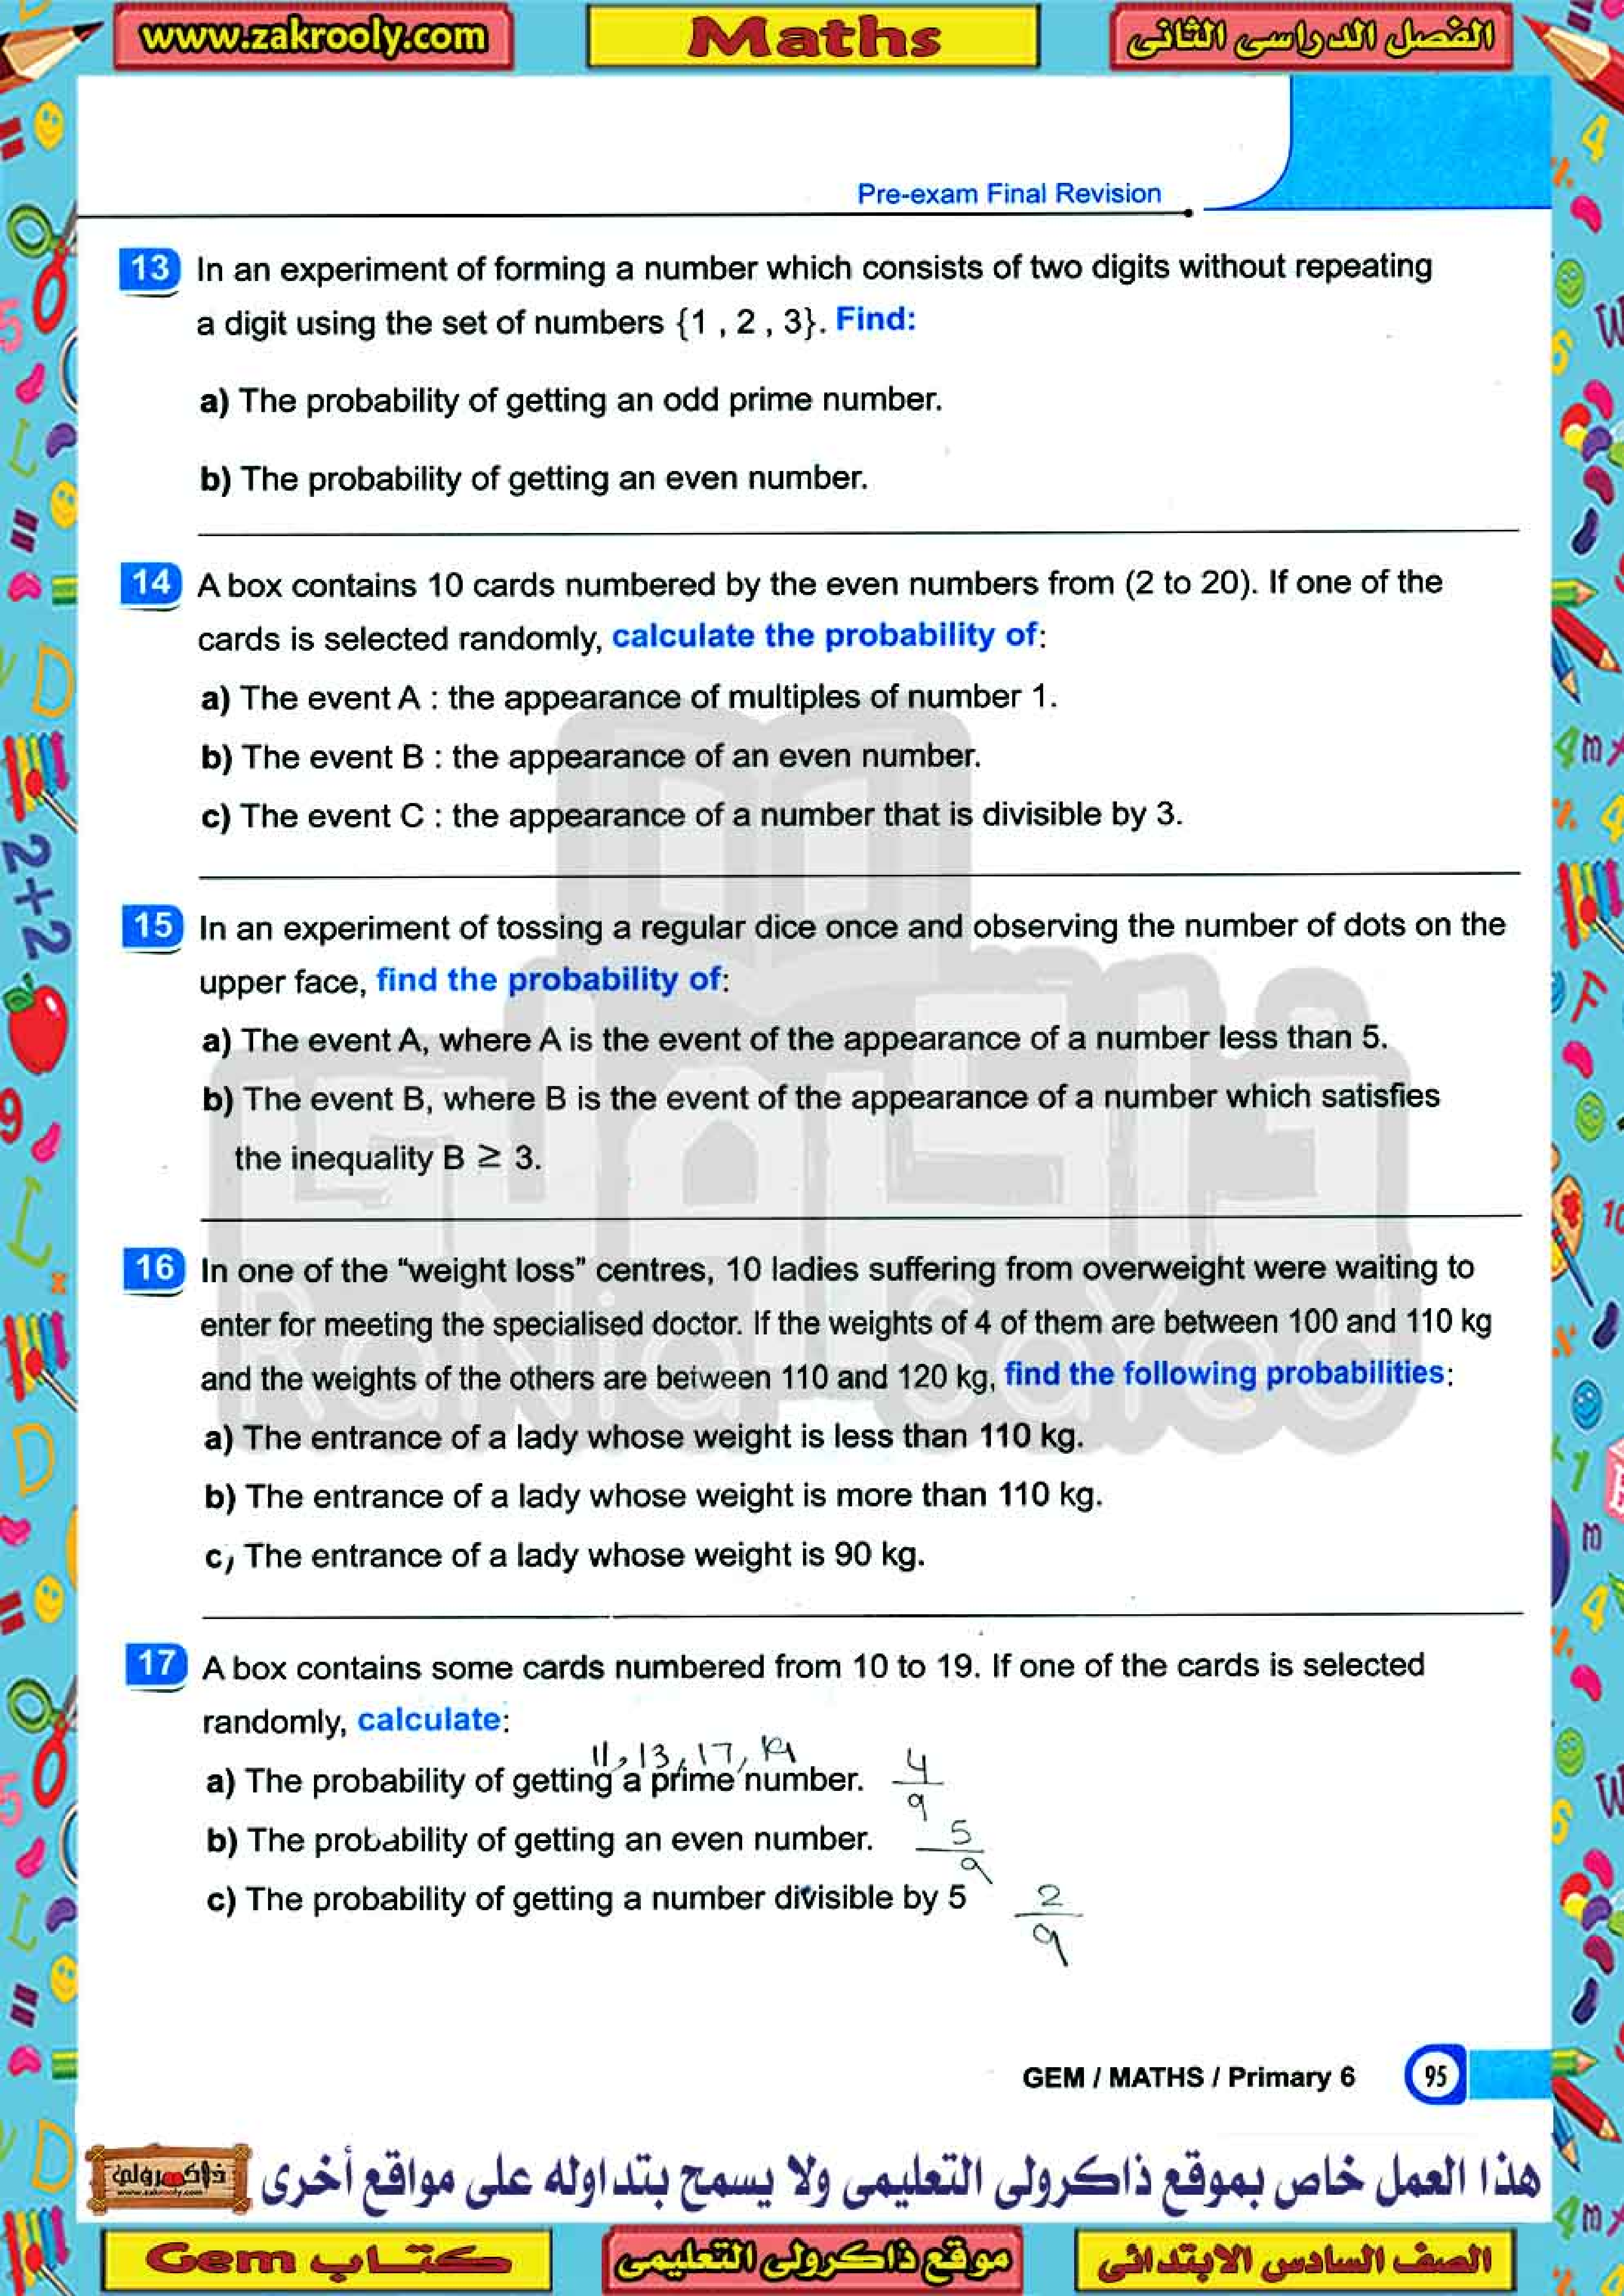 www.zakrooly.com
Maths
الفصل الدراسى الثانى
Pre-exam Final Revision
13 In an experiment of forming a number which consists of two digits without repeating
a digit using the set of numbers {1 , 2 , 3}. Find:
a) The probability of getting an odd prime number.
b) The probability of getting an even number.
14 A box contains 10 cards numbered by the even numbers from (2 to 20). If one of the
cards is selected randomly, calculate the probability of:
a) The event A : the appearance of multiples of number 1.
b) The event B : the appearance of an even number.
c) The event C : the appearance of a number that is divisible by 3.
15 In an experiment of tossing a regular dice once and observing the number of dots on the
upper face, find the probability of:
a) The event A, where A is the event of the appearance of a number less than 5.
b) The event B, where B is the event of the appearance of a number which satisfies
the inequality B ≥ 3.
16 In one of the “weight loss” centres, 10 ladies suffering from overweight were waiting to
enter for meeting the specialised doctor. If the weights of 4 of them are between 100 and 110 kg
and the weights of the others are between 110 and 120 kg, find the following probabilities:
a) The entrance of a lady whose weight is less than 110 kg.
b) The entrance of a lady whose weight is more than 110 kg.
c) The entrance of a lady whose weight is 90 kg.
17 A box contains some cards numbered from 10 to 19. If one of the cards is selected
randomly, calculate:
11, 13, 17, 19
a) The probability of getting a prime number. 4/9
b) The probability of getting an even number. 5/9
c) The probability of getting a number divisible by 5 2/9
GEM / MATHS / Primary 6 95
ذاكرولى
www.zakrooly.com
هذا العمل خاص بموقع ذاكرولى التعليمى ولا يسمح بتداوله على مواقع أخرى
كتاب Gem
موقع ذاكرولى التعليمى
الصف السادس الابتدائى
ذاكرولى
Rania Sayed